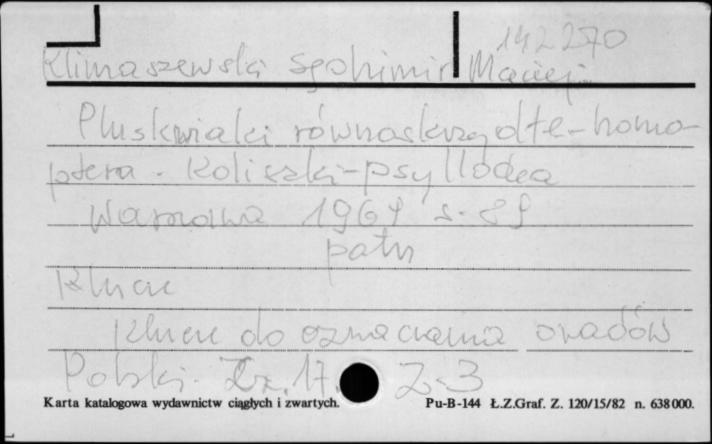 142270
Klimaszewski Sędzimir Maciej.
Pluskwiaki równoskrzydłe - homo-
ptera. Koliszki - psyllodea
Warszawa 1969 s. 89
patrz
Klucze
Klucze do oznaczania owadów
Polski. Cz. 17. Z. 3
Karta katalogowa wydawnictw ciągłych i zwartych. Pu-B-144 Ł.Z.Graf. Z. 120/15/82 n. 638 000.